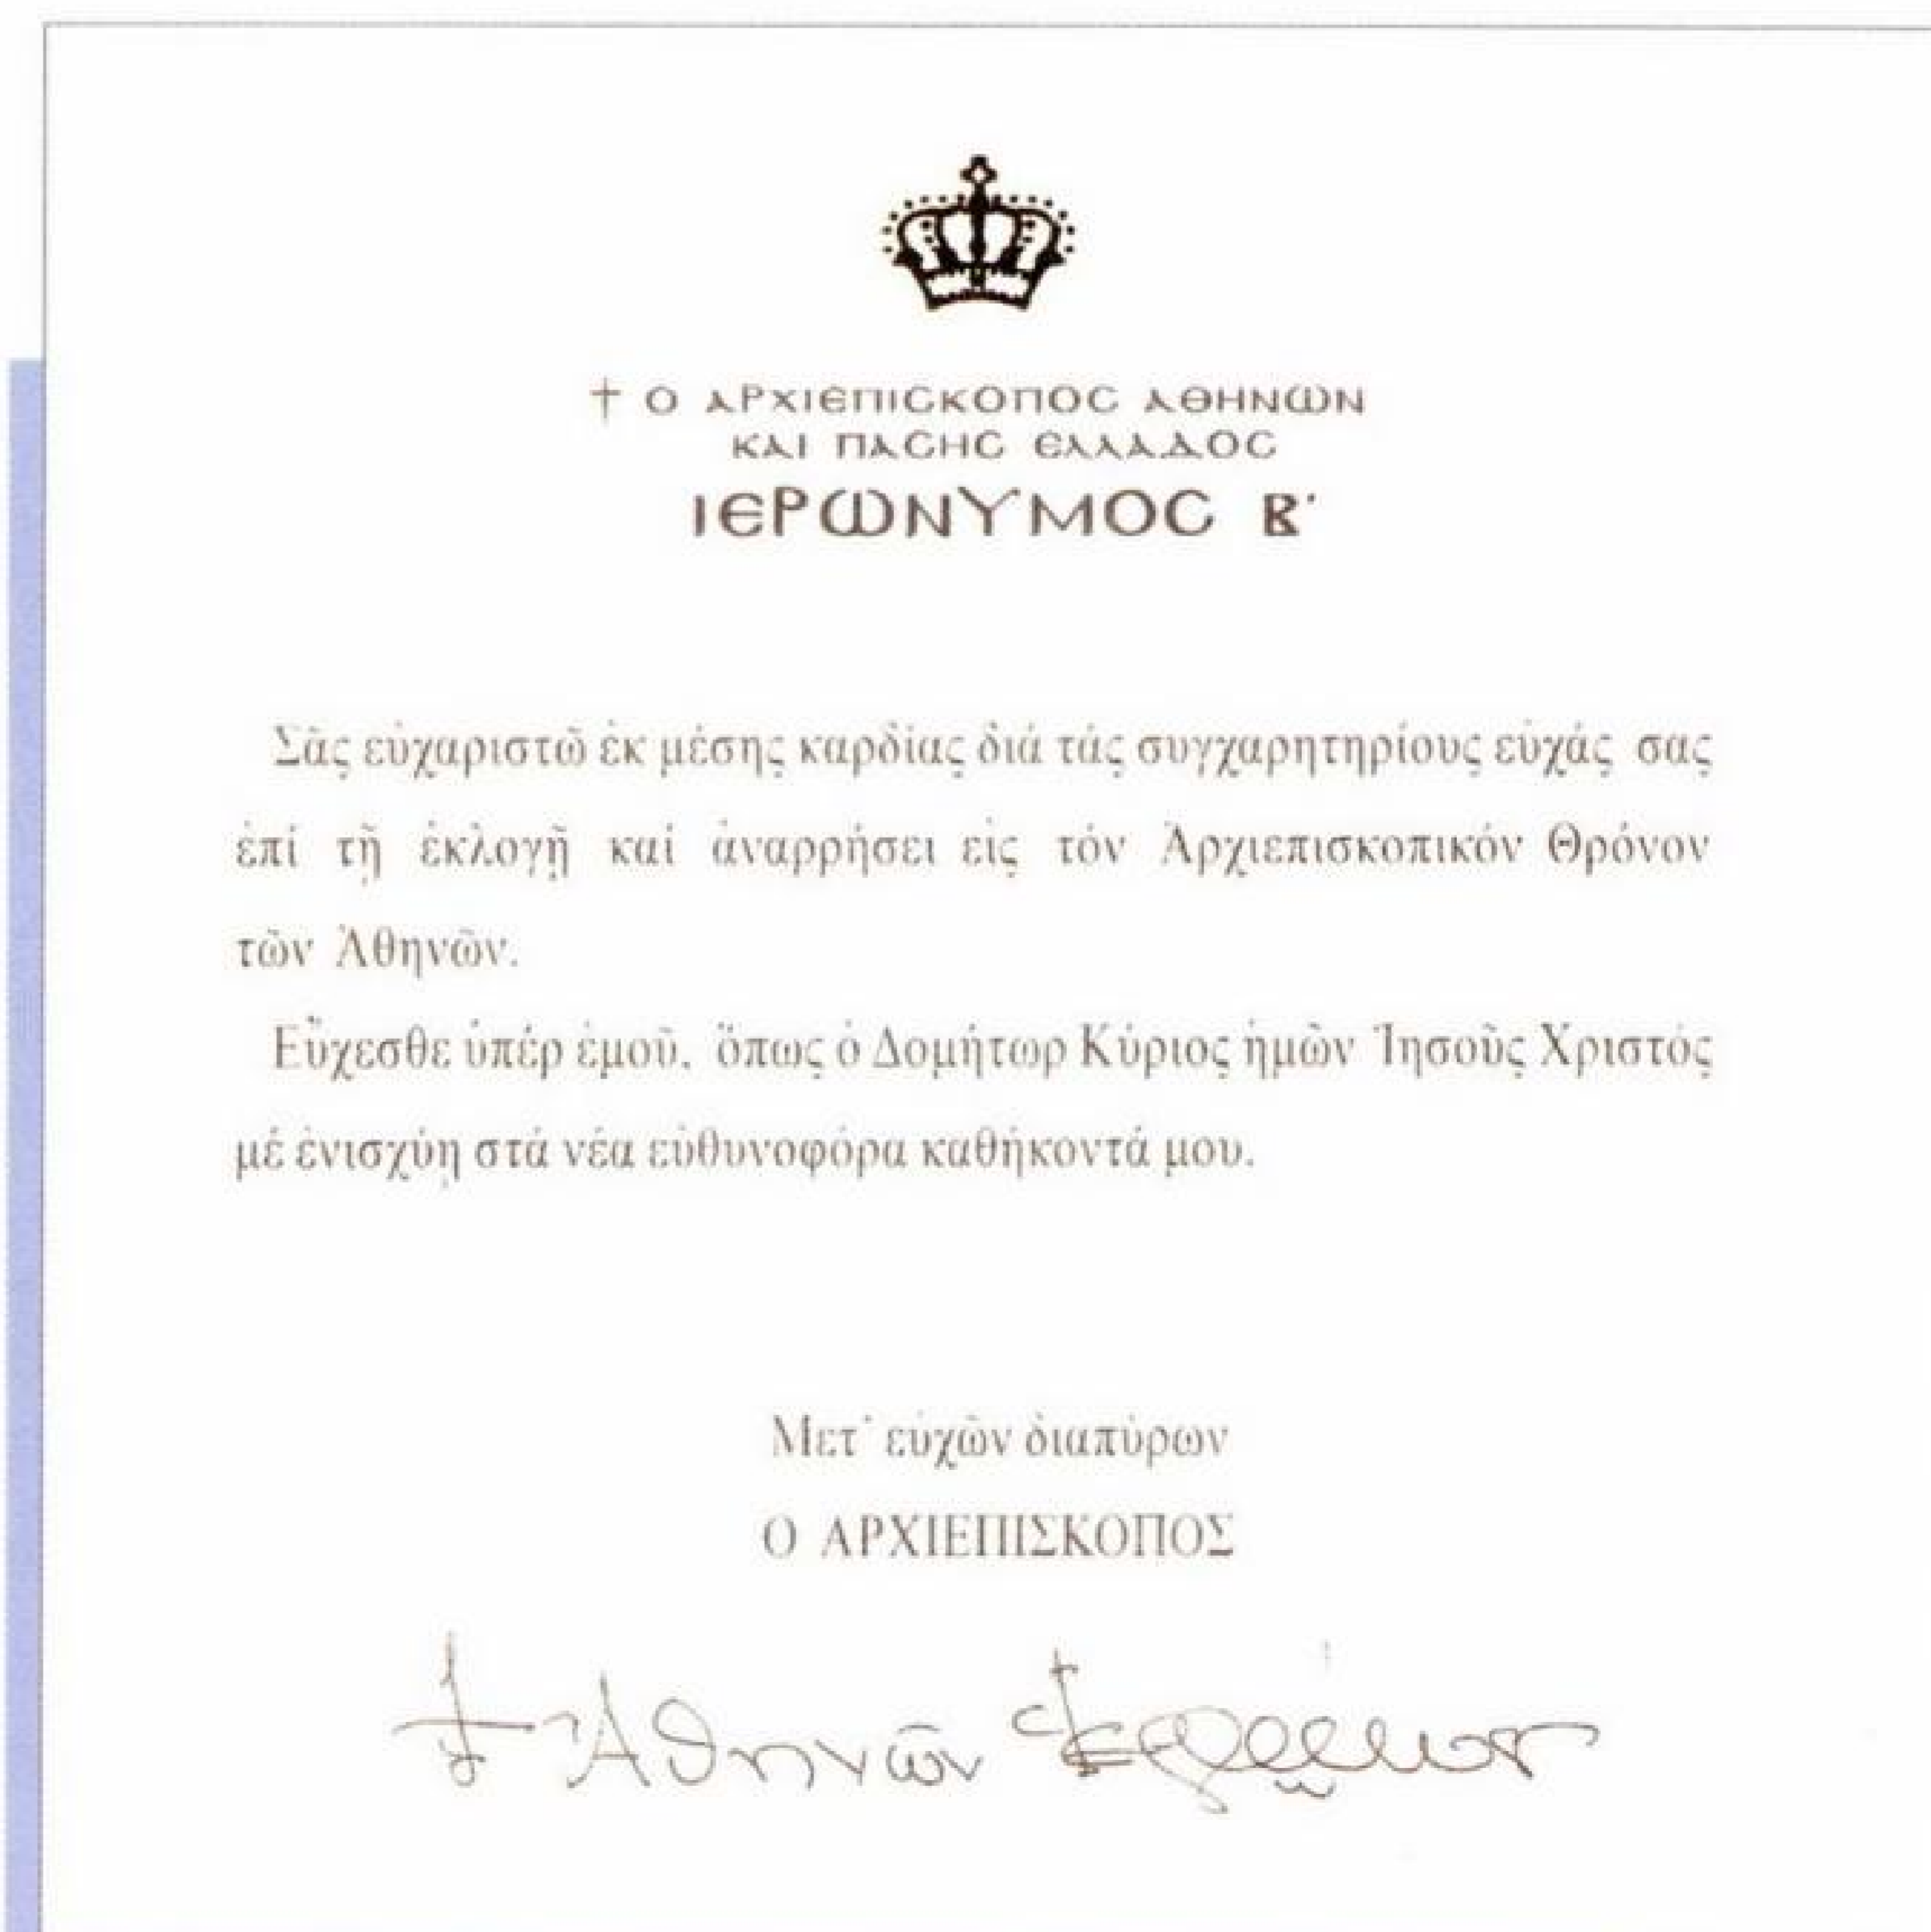 † Ο ΑΡΧΙΕΠΙΣΚΟΠΟΣ ΑΘΗΝΩΝ
ΚΑΙ ΠΑΣΗΣ ΕΛΛΑΔΟΣ
ΙΕΡΩΝΥΜΟΣ Β΄
Σᾶς εὐχαριστῶ ἐκ μέσης καρδίας διά τάς συγχαρητηρίους εὐχάς σας
ἐπί τῇ ἐκλογῇ καί ἀναρρήσει εἰς τόν Ἀρχιεπισκοπικόν Θρόνον
τῶν Ἀθηνῶν.
Εὔχεσθε ὑπέρ ἐμοῦ, ὅπως ὁ Δομήτωρ Κύριος ἡμῶν Ἰησοῦς Χριστός
μέ ἐνισχύῃ στά νέα εὐθυνοφόρα καθήκοντά μου.
Μετ᾽ εὐχῶν διαπύρων
Ο ΑΡΧΙΕΠΙΣΚΟΠΟΣ
† Ἀθηνῶν